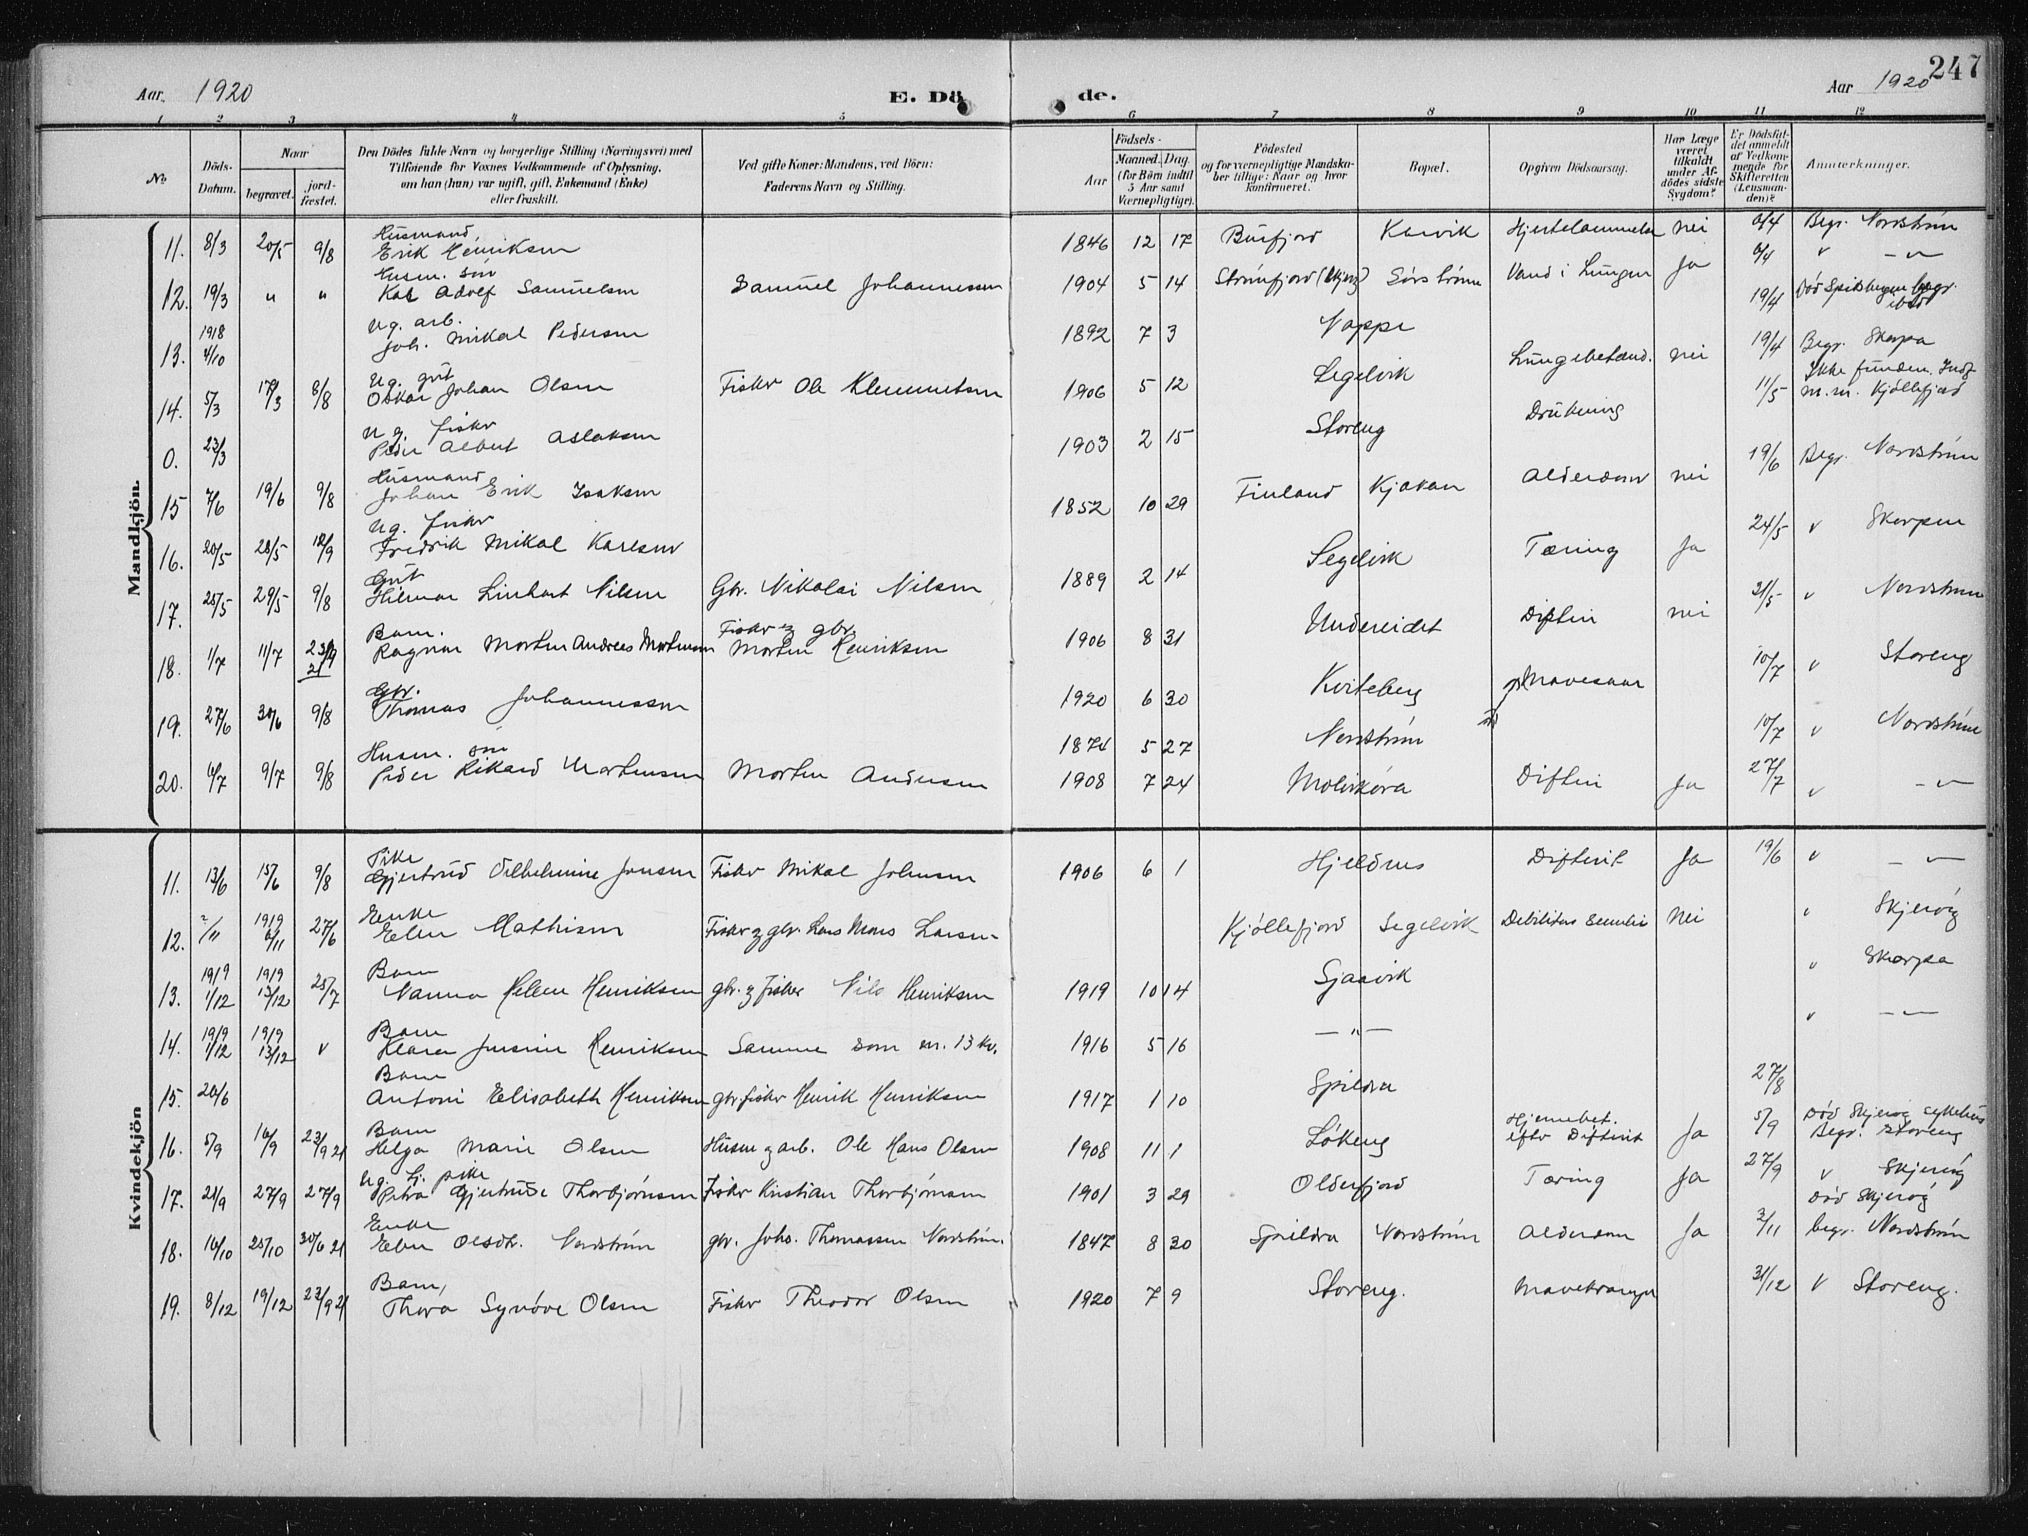 247
Aar. 1920
E. Dö de.
Aar 1920
1 2 3 4 5 6 7 8 9 10 11 12
No.
Döds-Datum.
Naar
begravet.
jord-fæstet.
Den Dödes fulde Navn og borgerlige Stilling (Næringsvei) med Tilföiende for Voxnes Vedkommende af Oplysning, om han (hun) var ugift, gift, Enkemand (Enke) eller fraskilt.
Ved gifte Koner: Mandens, ved Börn: Faderens Navn og Stilling.
Födsels-
Aar
Maaned. Dag.
(for Börn indtil 5 Aar samt Værnepligtige).
Födested
og for værnepligtige Mandskaber tillige: Naar og hvor konfirmeret.
Bopæl.
Opgiven Dödsaarsag.
Har Læge været tilkaldt under Afdödes sidste Sygdom?
Er Dödsfaldet anmeldt af Vedkommende for Skifteretten (Lensmanden)?
Anmærkninger.
Mandkjön.
11. 8/3 20/5 9/8 Husmand Erik Henriksen 1846 12 17 Burfjord Karvik Hjertelammelse nei 6/4 Begr. Nordstrøm
12. 19/3 " " Husm. søn Karl Adolf Samuelsen Samuel Johannessen 1904 5 14 Strømfjord (Skjerv) Sørstrømen Vand i Lungen Ja 6/4 " — " —
13. 1918 4/10 Ug. arb. Joh. Mikal Pedersen 1892 7 3 Nappe 19/4 Død Spitsbergen begr. ibid
14. 5/3 17/3 8/8 Ug. gut Oskar Johan Olsen Fisker Ole Klemmetsen 1906 5 12 Segelvik Lungebetænd. nei 19/4 Begr. Skorpa
0. 23/3 Ug. fisker Peder Albert Aslaksen 1903 2 15 Storeng Drukning 11/5 Ikke funden. Indf. m.m. Kjøllefjord
15 7/6 19/6 9/8 Husmand Johan Erik Isaksen 1852 10 29 Finland Kjækan Alderdom nei 19/6 Begr. Nordstrøm
16. 20/5 28/5 12/9 Ug. fisker Fredrik Mikal Karlsen 1889 2 14 Segelvik Tæring Ja 24/5 v Skorpen
17. 25/5 29/5 9/8 Gut Hilmar Linhart Nilsen Gbr. Nikolai Nilsen 1906 8 31 Undereidet Difteri nei 31/5 v Nordstrøm
18. 1/7 11/7 23/9 21 Barn. Ragnar Morten Andreas Mortensen Fisker og gbr Morten Henriksen 1920 6 30 Kviteberg 10/7 v Storeng
19. 27/6 30/6 9/8 Gbr. Thomas Johannessen 1874 5 27 Nordstrøm Mavesaar 10/7 v Nordstrøm
20. 4/7 9/7 9/8 Husm. søn Peder Rikard Mortensen Morten Andersen 1908 7 24 Molvikøra Difteri Ja 27/7 v — " —
Kvindekjön
11. 13/6 15/6 9/8 Pike Gjertrud Vilhelmine Jonsen Fisker Mikal Johnsen 1906 6 1 Hjeldnes Difterit Ja 19/6 v — " —
12. ?/11 1919 6/11 27/6 Enke Elen Mathisen Fisker og gbr. Lars Mons Larsen Kjøllefjord Segelvik Debilitas senilis Nei " Skjervøy
13. 1919 1/12 1919 13/12 25/7 Barn Nanna Helene Henriksen gbr. og fisker Nils Henriksen 1919 10 14 Sjaavik " Skorpa
14. 1919 1/12 1919 13/12 v Barn Klara Jensine Henriksen Samme som nr. 13 kv. 1916 5 16 — " — v — " —
15. 20/6 Barn Antoni Elisabeth Henriksen gbr. fisker Henrik Henriksen 1917 1 10 Spildra 27/8
16. 5/9 10/9 23/9 21 Barn Helga Marie Olsen Husm og arb. Ole Hans Olsen 1908 11 1 Løkeng Hjernebet. efter Difterit Ja 5/9 Død Skjervøy sykehus Begr. Storeng
17. 21/9 27/9 27/9 Ug. tj. pike Petra Gjertrude Thorbjørnsen Fisker Kristian Thorbjørnsen 1901 3 29 Olderfjord Tæring Ja 27/9 v Skjervøy
18. 16/10 25/10 30/6 21 Enke Elen Olsdtr. Nordstrøm gbr. Johs. Thomassen Nordstrøm. 1847 8 20 Spildra Nordstrøm Alderdom Ja 3/11 Død Skjervøy begr. Nordstrøm
19. 8/12 19/12 23/9 21 Barn, Thora Synøve Olsen Fisker Theodor Olsen 1920 7 9 Storeng. Mavekrampe 31/12 v Storeng.